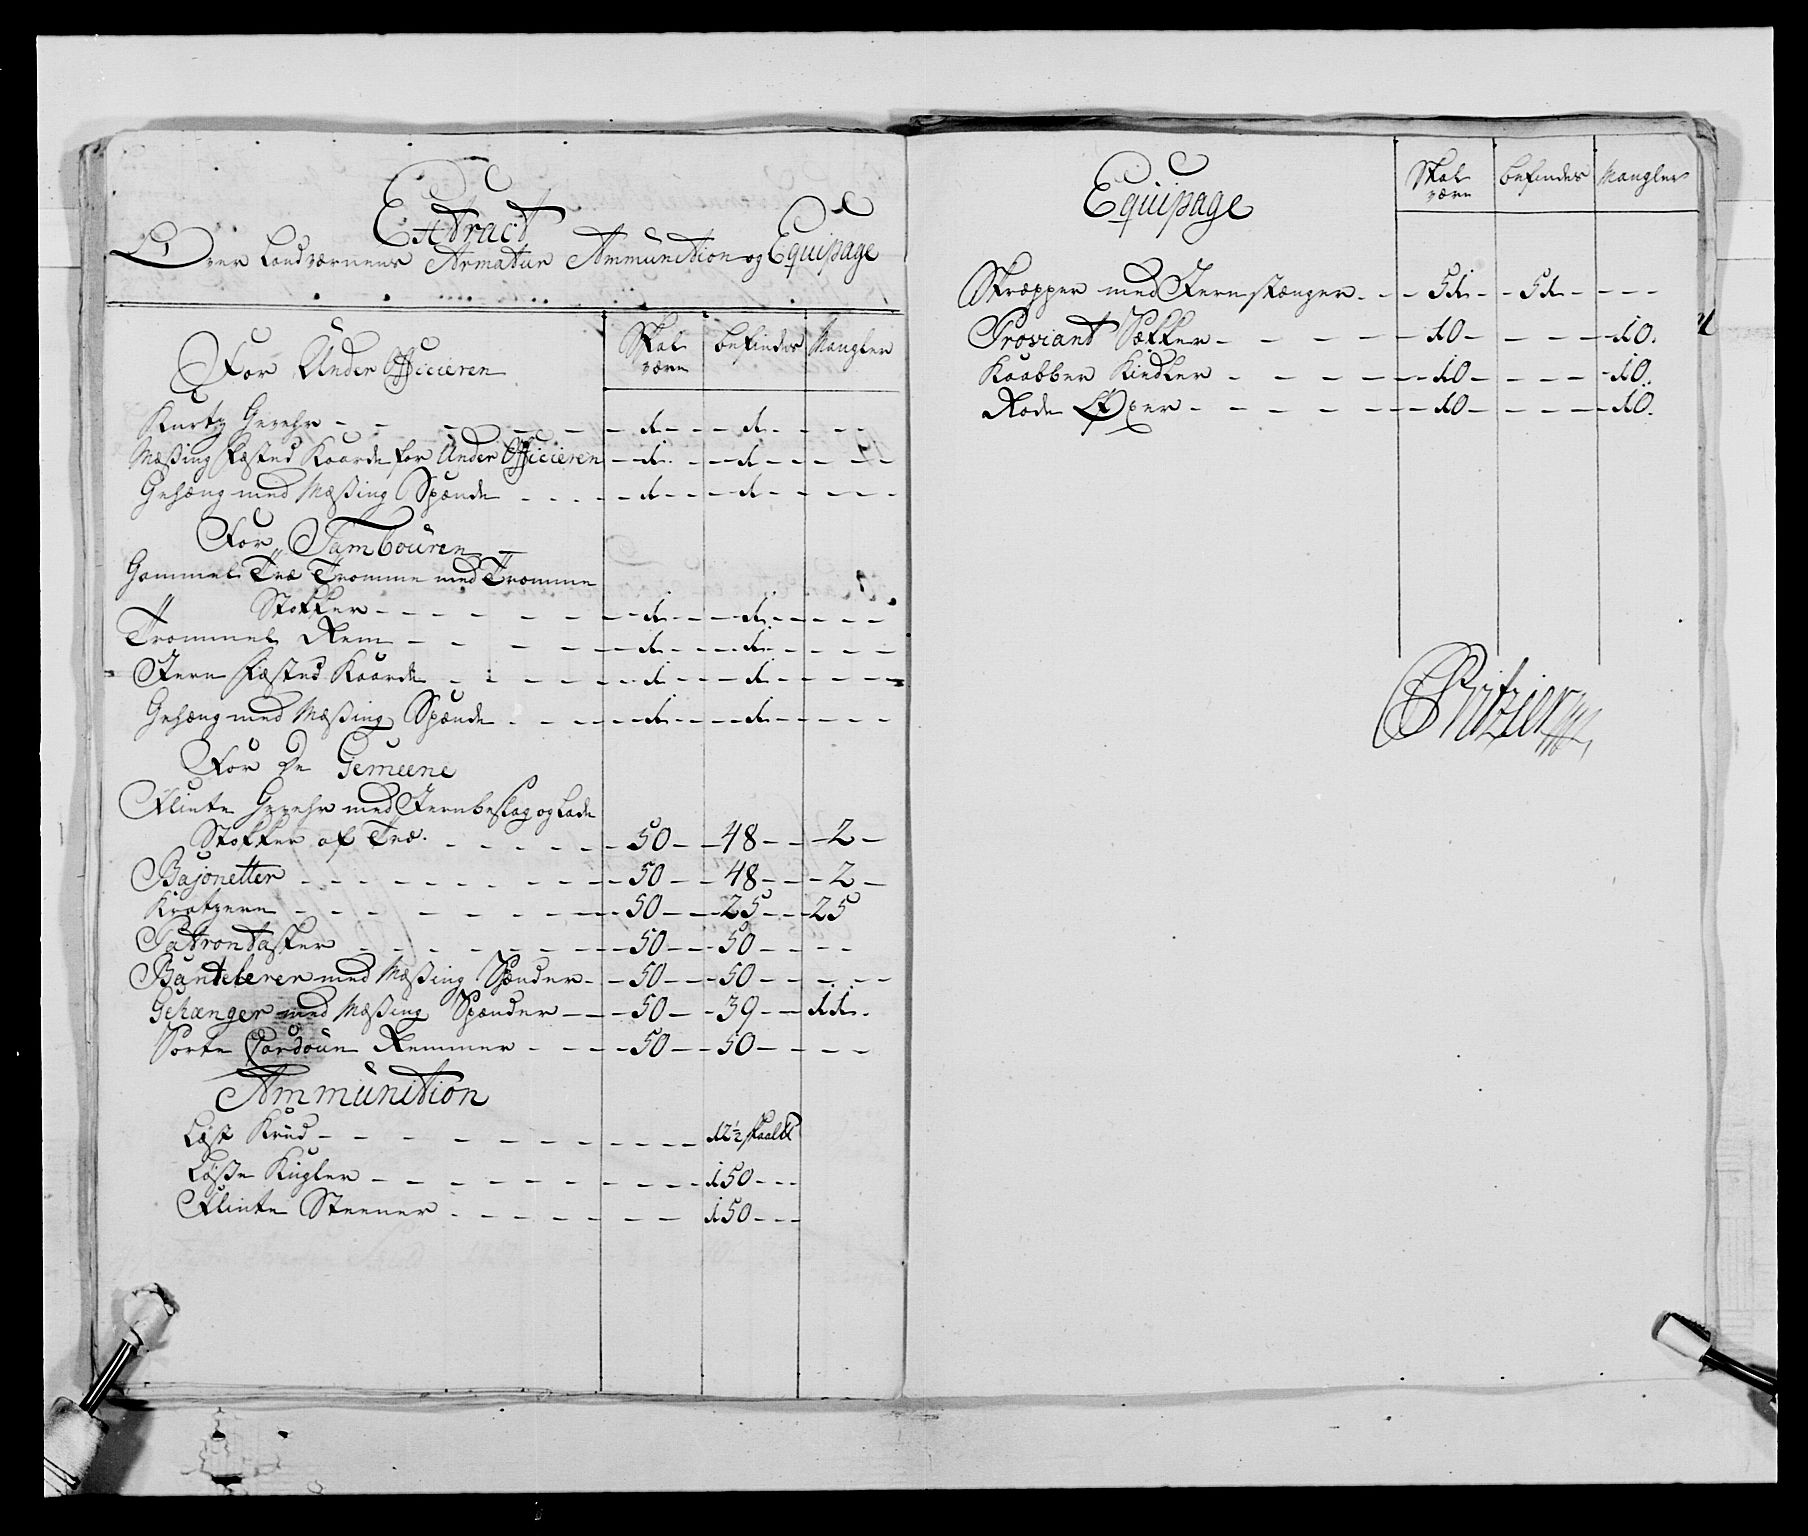 Extract
Over Landværnens Armatur Ammunition og Equipage
For Under Officieren
Skal være
befindes
Mangler
Kurtz Gevehr - - 1 - - 1 - - -
Mæßing fæsted Kaarde for Under Officieren - 1 - - 1 - - -
Gehæng med Mæßing Spænde - - 1 - - 1 - - -
For Tambouren
Gammel Træ Tromme med Tromme
Stokker - - 1 - - 1 - - -
Trommel Rem - - 1 - - 1 - - -
Jern fæsted Kaarde - - 1 - - 1 - - -
Gehæng med Mæßing Spænde - - 1 - - 1 - - -
For De Gemeene
Flinte Gevehr med Jernbeslag og Lade
Stokker af Træ. - - 50 - - 48 - - 2 -
Bajonetter - - 50 - - 48 - - 2 -
Kratzere - - 50 - - 25 - - 25
Patrontasker - - 50 - - 50 - - -
Bantelerer med Mæßing Spænder - 50 - - 50 - - -
Gehænger med Mæßing Spænder - - 50 - - 39 - - 11 -
Sorte Corduun Remmer - - 50 - - 50 - - -
Ammunition
Løst Krud - - - 12½ skaal℔
Løße Kugler - - - 150 - -
Flinte Steener - - - 150 - -
Equipage
Skal være
befindes
Mangler
Skræpper med Jernstænger - - 51 - - 51 - - -
Proviant Sækker - - 10 - - - 10.
Kaabber Kiedler - - 10 - - - 10.
Rode Øxer - - 10 - - - 10.
Pritzier